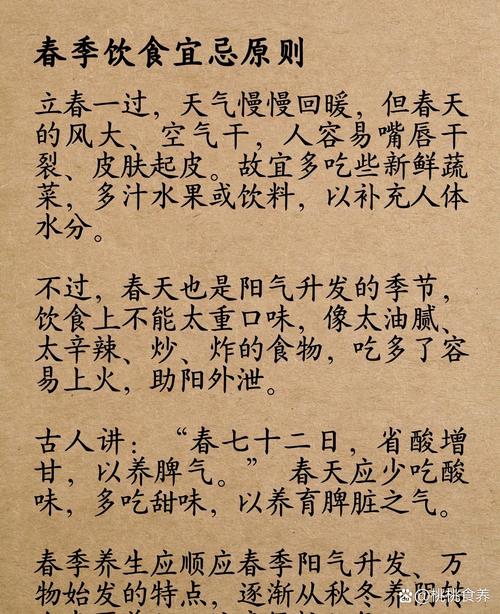 春季饮食宜忌原则
立春一过，天气慢慢回暖，但春天
的风大、空气干，人容易嘴唇干
裂、皮肤起皮。故宜多吃些新鲜蔬
菜，多汁水果或饮料，以补充人体
水分。
不过，春天也是阳气升发的季节，
饮食上不能太重口味，像太油腻、
太辛辣、炒、炸的食物，吃多了容
易上火，助阳外泄。
古人讲：“春七十二日，省酸增
甘，以养脾气。” 春天应少吃酸
味，多吃甜味，以养育脾脏之气。
春季养生应顺应春季阳气升发、万
物始发的特点，逐渐从秋冬养阴
桃桃食养